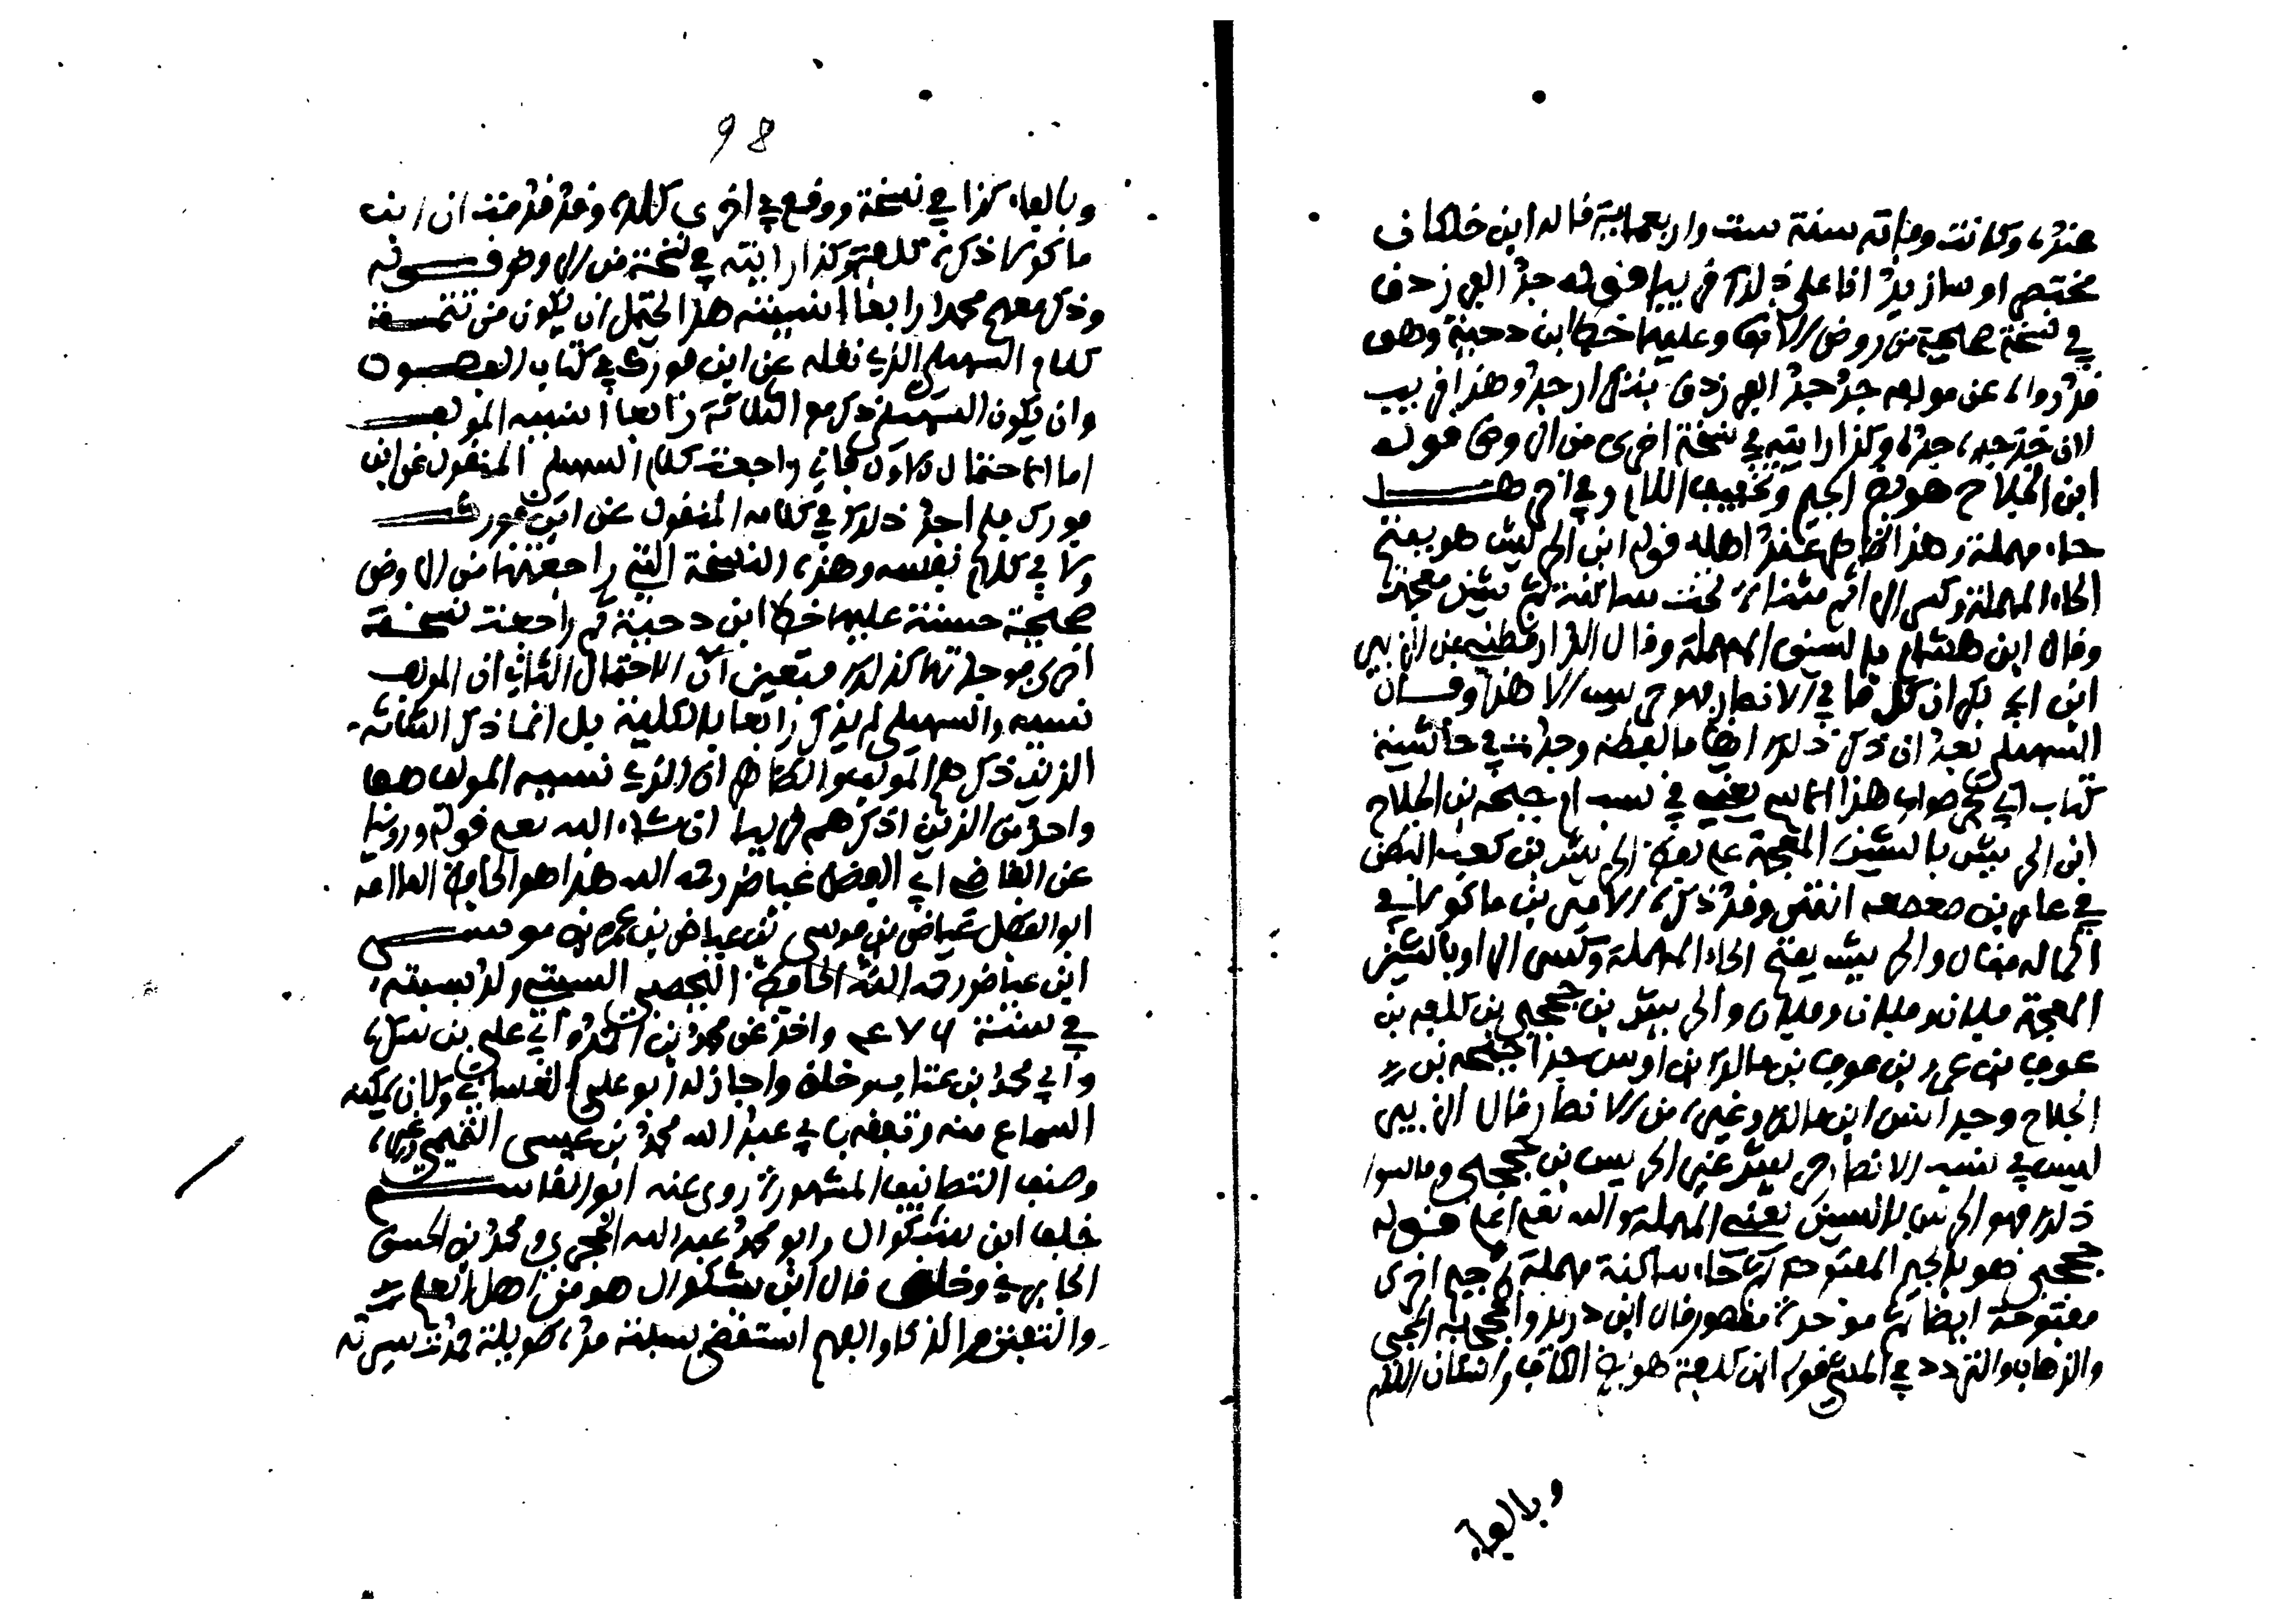 عنده وكانت وفاته سنة ست واربعماية قاله ابن خلكان
مختصرا وسازيد انا على ذلك قريبا قوله جد الفرزدق
في نسخة صحيحة من روض الانف وعليها خط ابن دحية وهو
قد روا عن مولعه جد جد الفرزدق بتكرار جد وهذا قريب
لان جد جده جده وكذا رايته في نسخة اخرى من الروض قوله
ابن الجلاح هو بضم الجيم وتخفيف اللام وفي اخره
حاء مهملة وهذا ظاهر عند اهله قوله ابن الحريش هو بفتح
الحاء المهملة وكسر الراء ثم مثناة تحت ساكنة ثم شين معجمة
وقال ابن هشام بالسين المهملة وقال الدارقطني عن الزبير
ابن ابي بكر ان كل ما في الانصار فهو حريس الا هذا وقال
السهيلي بعد ان ذكر ذلك ايضا ما لفظه وجدت في حاشية
كتاب ابي بحر صواب هذا الاسم يعني في نسب احيحة بن الجلاح
ابن الحريش بالشين المعجمة على لفظ الحريش بن كعب البطن
في عامر بن صعصعه انتهى وقد ذكره الامير بن ماكولا في
اكماله فقال والحريش بفتح الحاء المهملة وكسر الراء وبالشين
المعجمة فلان وفلان وفلان والحريش بن جحجبى بن كلفه بن
عوف بن عمرو بن عوف بن مالك بن اوس جد احيحه بن
الجلاح وجد انس ابن مالك وغيره من الانصار قال الزبير
ليس في نسب الانصار حريش غير الحريس بن جحجبى وما سوا
ذلك فهو الحريس بالسين يعني المهملة والله تعلى اعلم قوله
جحجبى هو بالجيم المفتوحة ثم حاء ساكنة مهملة ثم جيم اخرى
مفتوحة ايضا ثم موحدة مقصور قال ابن دريد والجحجبه المجي
والذهاب والتردد في المشي قوله ابن كلفة هو بضم الكاف واسكان اللام
وبالفاء
98
وبالفاء كذا في نسخة ووقع في اخرى كلده وقد قدمت ان ابن
ماكولا ذكره كلفة وكذا رايته في نسخة من الروض قوله
وذكر معهم محمدا رابعا انسيته هذا يحتمل ان يكون من تتمة
كلام السهيلي الذي نقله عن ابن فورك في كتاب الفصول
وان يكون السهيلي ذكر مع الثلاثة رابعا انسيه المولف
اما الاحتمال الاول فاني راجعت كلام السهيلي المنقول عن ابن
فورك فلم اجد ذلك في كلامه المنقول عن ابن فورك
ولا في كلام نفسه وهذه النسخة التي راجعتها من الروض
صحيحة حسنة عليها خط ابن دحية ثم راجعت نسخة
اخرى فوجدتها كذلك فتعين ان الاحتمال الثاني ان المولف
نسيه والسهيلي لم يذكر رابعا بالكلية بل انما ذكر الثلاثة
الذين ذكرهم المولف والظاهر ان الذي نسيه المولف هو
واحد من الذين اذكرهم قريبا ان شاء الله تعلى قوله وروينا
عن القاضي ابي الفضل عياض رحمه الله هذا هو الحافظ العلامه
ابو الفضل عياض بن موسى بن عياض بن عمرو بن موسى
ابن عياض رحمه الله الحافظ اليحصبي السبتي ولد بسبته
في سنة ٤٧٦ واخذ عن محمد بن احمد وابي علي بن سكره
وابي محمد بن عتاب وخلق واجاز له ابو علي الغساني وكان يمكنه
السماع منه وتفقه بابي عبد الله محمد بن عيسى التميمي وغيره
وصنف التصانيف المشهورة روى عنه ابو القاسم
خلف ابن بشكوال وابو محمد عبد الله الحجري ومحمد بن الحسن
الجابري وخلق قال ابن بشكوال هو من اهل العلم
والتفنن والذكا والفهم استقضي بسبتة مدة طويلة حمدت سيرته